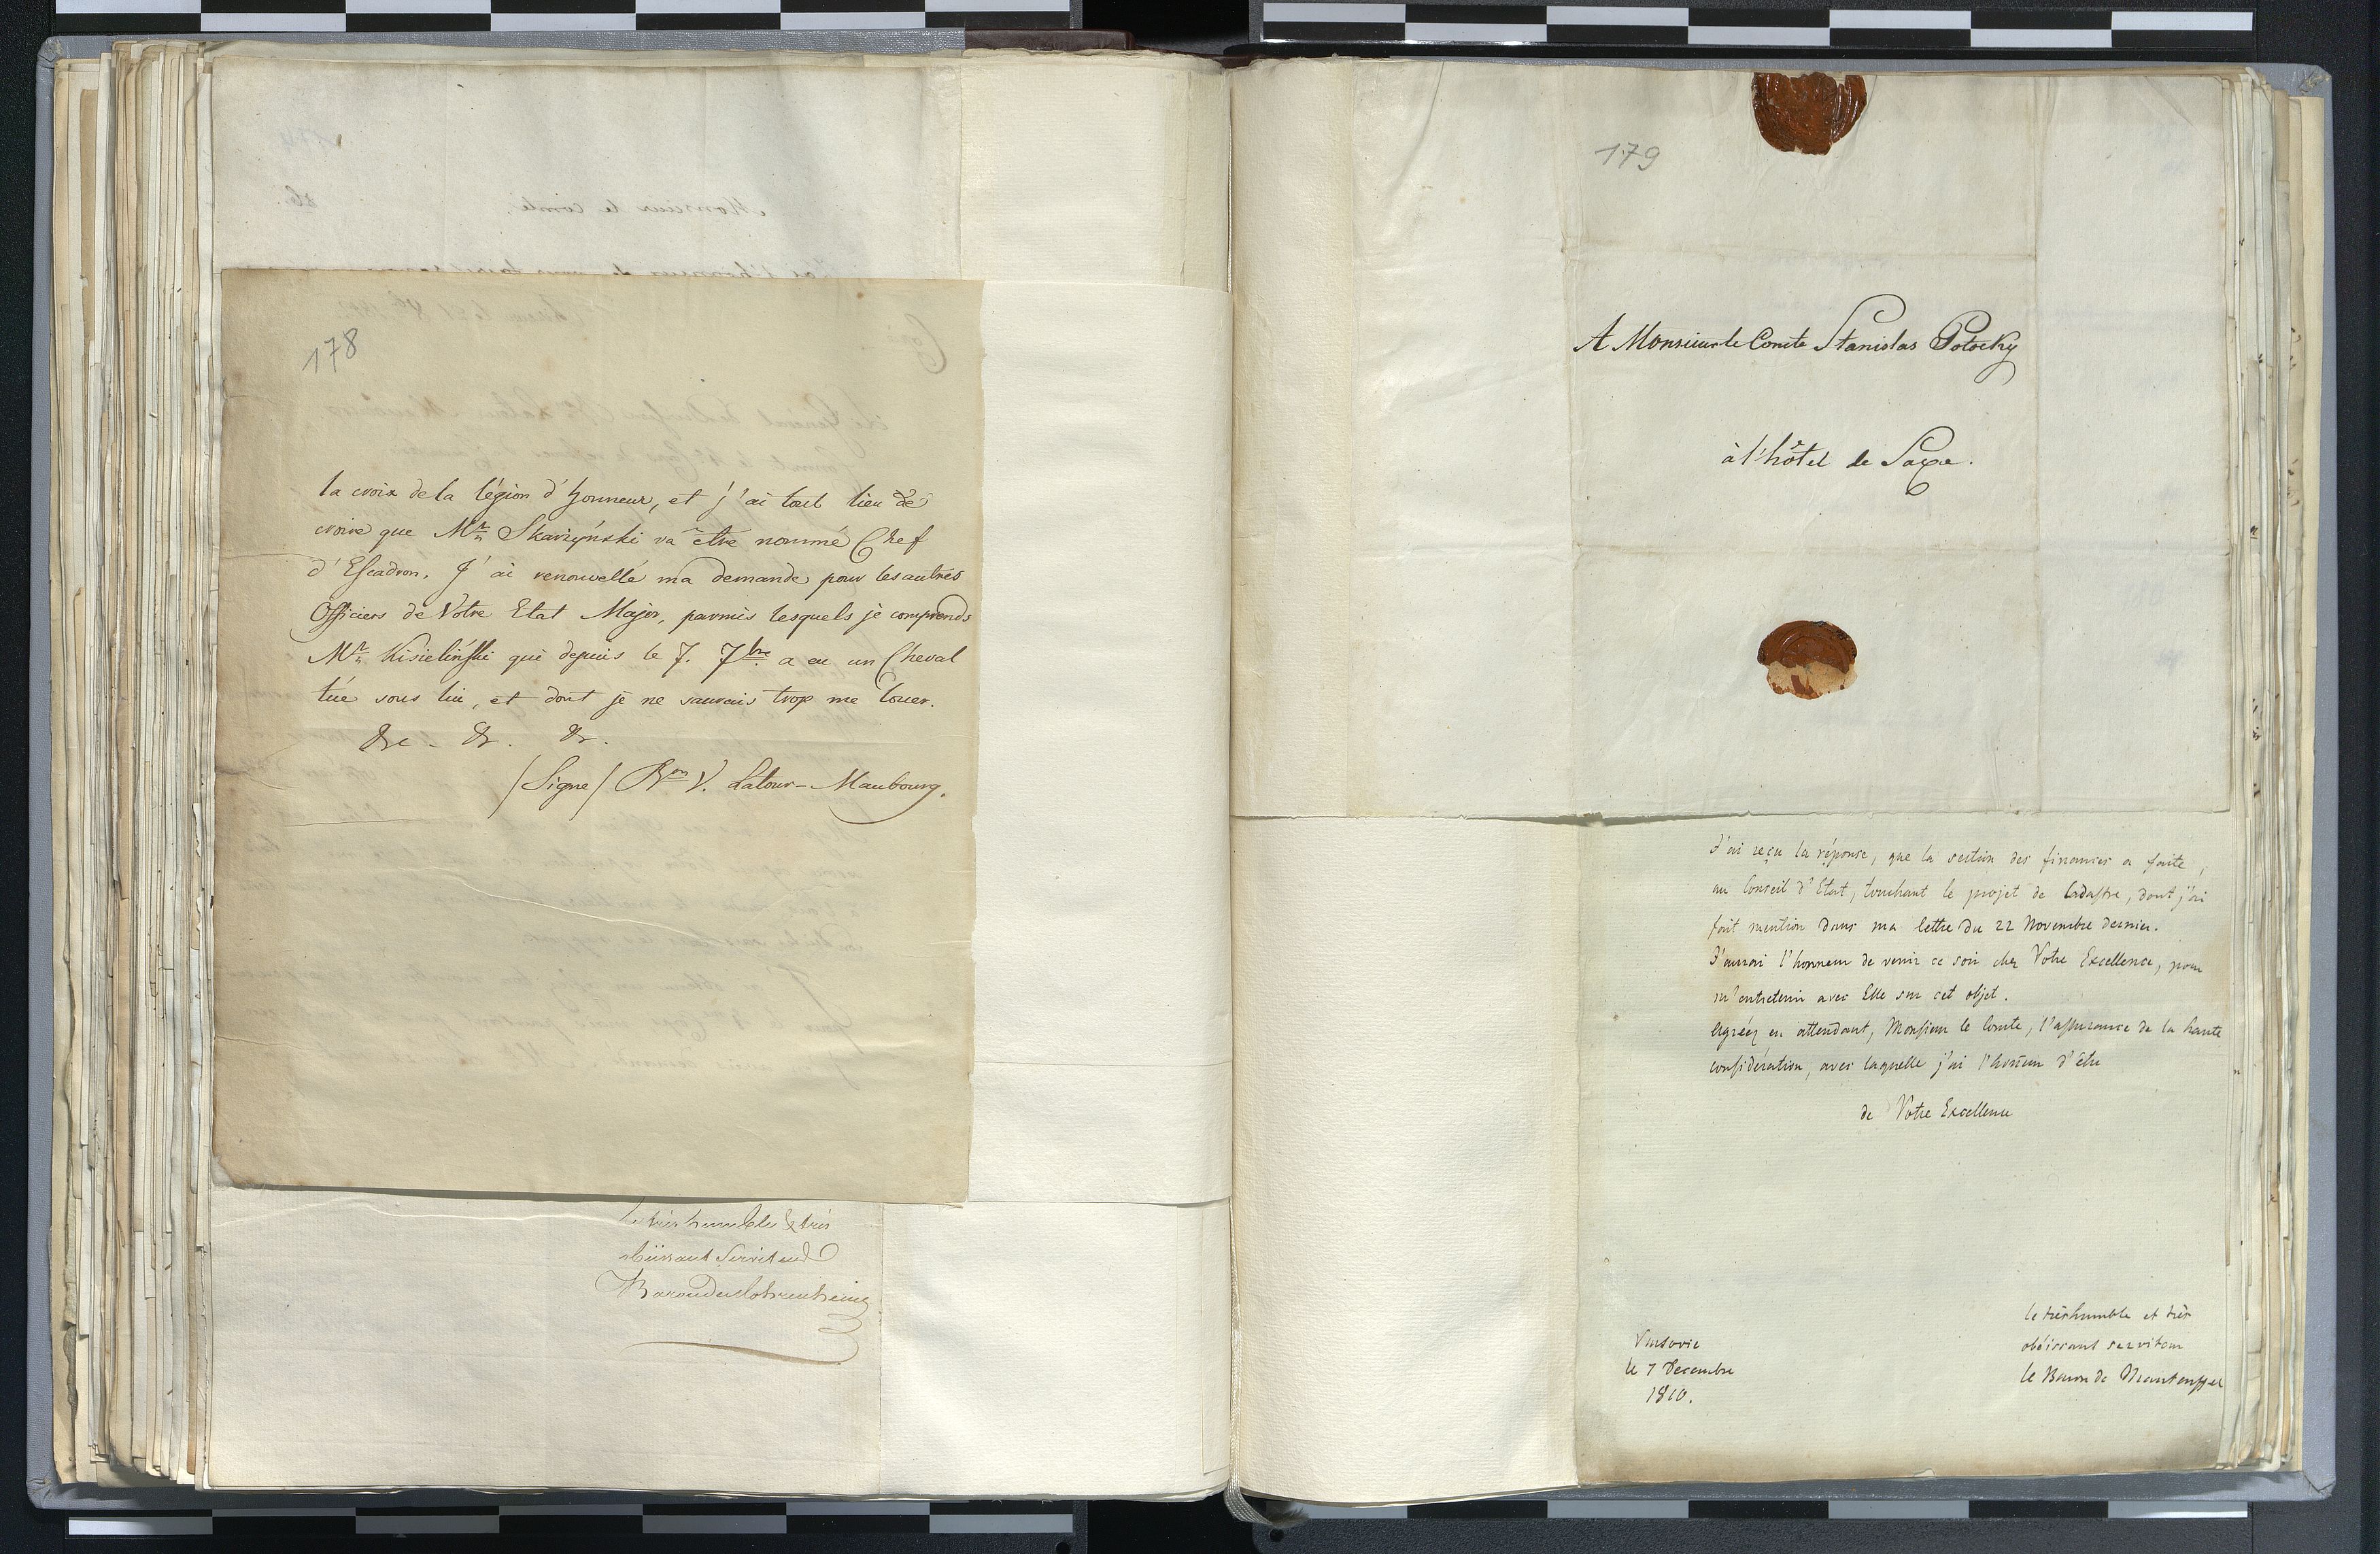 178
la croix de la légion d'honneur, et j'ai tout lieu de
croire que Mr. Skarzýnski va être nommé Chef
d'Escadron. J'ai renouvellé ma demande pour les autres
Officiers de Votre Etat Major, parmis lesquels je comprends
Mr. Kisieliński qui depuis le 7. 7bre a eu un Cheval
tué sous lui, et dont je ne saurais trop me louer.
&c. &c. &c.
/Signe/ Bon V. Latour-Maubourg.
le très humble & très
obéissant Serviteur
Baron de
179
A Monsieur le Comte Stanislas Potocky
à l'hôtel de Saxe.
J'ai reçu la réponse, que la section des finances a faite,
au Conseil d'Etat, touchant le projet de Cadastre, dont j'ai
fait mention dans ma lettre du 22 Novembre dernier.
J'aurai l'honneur de venir ce soir chez Votre Excellence, pour
m'entretenir avec Elle sur cet objet.
Agréez en attendant, Monsieur le Comte, l'assurance de la haute
considération, avec laquelle j'ai l'honneur d'être
de Votre Excellence
le très humble et très
obéissant serviteur
le Baron de Manteuffel
Varsovie
le 7 Decembre
1810.